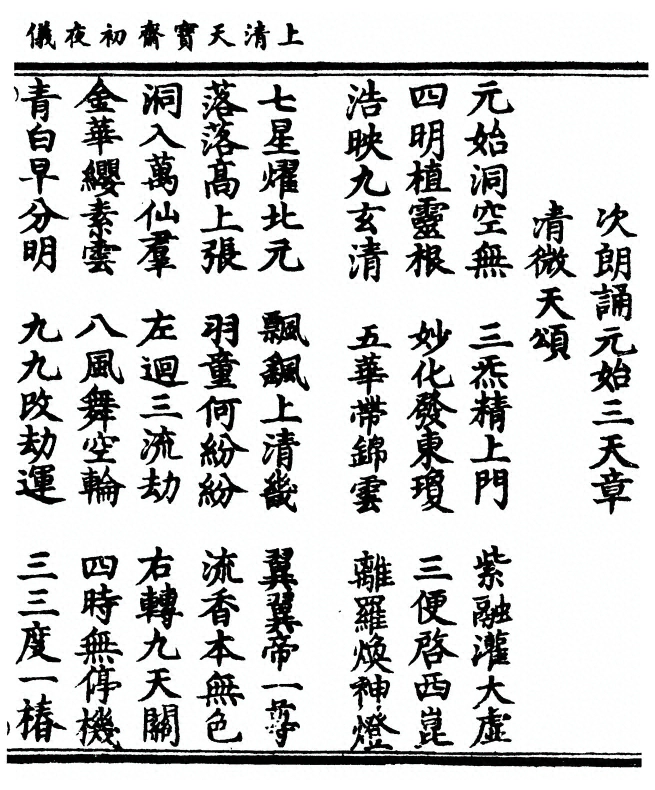 上清天寶齋初夜儀
次朗誦元始三天章
清微天頌
元始洞空無 三炁精上門 紫融灌大虛
四明植靈根 妙化發東瓊 三便啓西崑
浩映九玄清 五華帶錦雲 離羅煥神燈
七星燿北元 飄飖上清畿 翼翼帝一尊
落落高上張 羽童何紛紛 流香本無色
洞入萬仙羣 左迴三流劫 右轉九天關
金華纓素雲 八風舞空輪 四時無停機
青白早分明 九九改劫運 三三度一椿